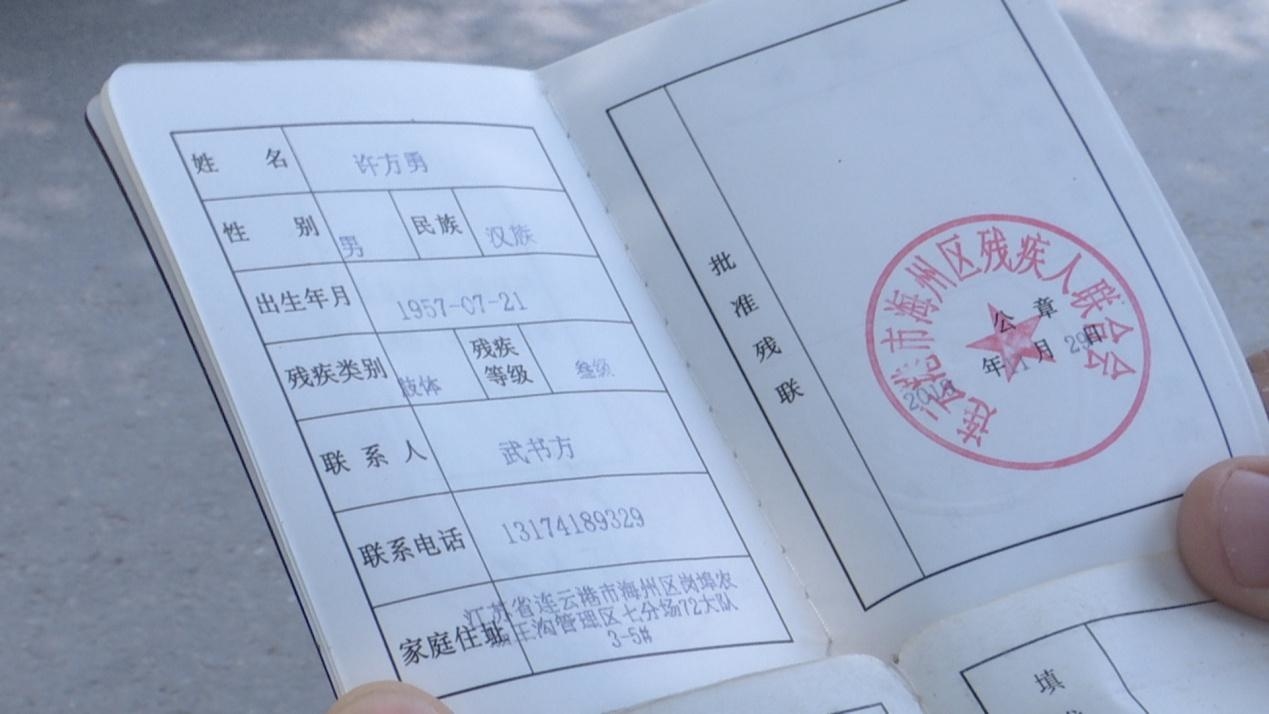 姓 名 许方勇
性 别 男 民族 汉族
出生年月 1957-07-21
残疾类别 肢体 残疾等级 叁级
联系人 武书方
联系电话 13174189329
家庭住址 江苏省连云港市海州区岗埠农
王沟管理区七分场72大队
3-5#
批准残联
连云港市海州区残疾人联合会
公章
年 月 29日
填